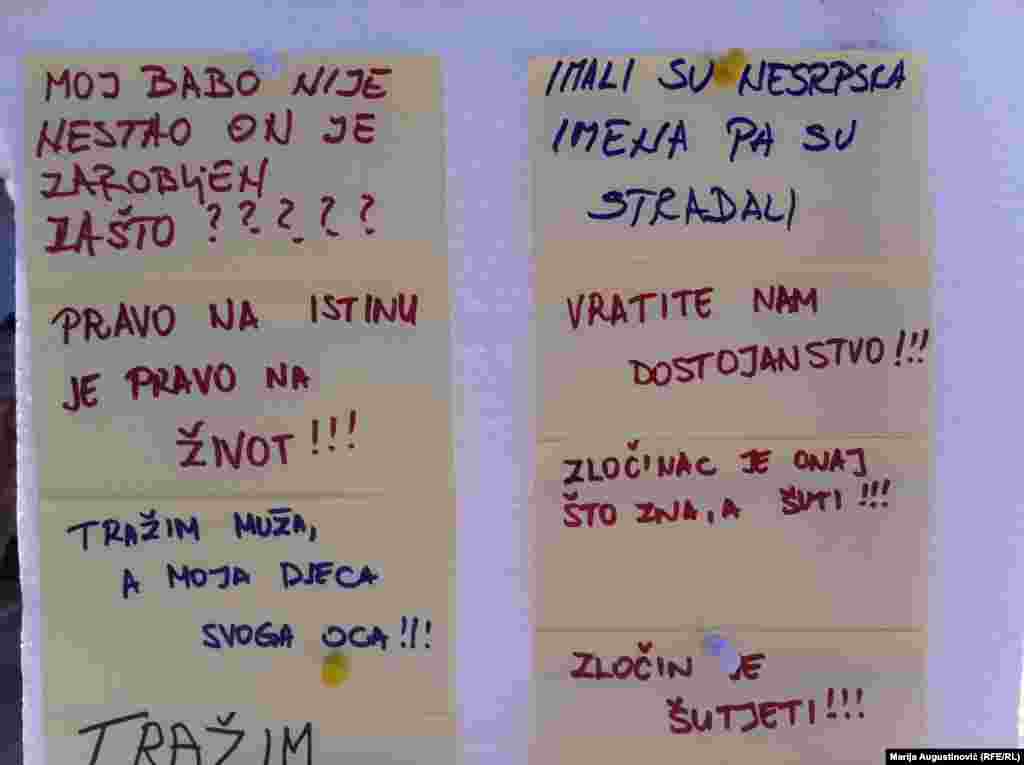 MOJ BABO NIJE
NESTAO ON JE
ZAROBLJEN
ZAŠTO ?????
PRAVO NA ISTINU
JE PRAVO NA
ŽIVOT!!!
TRAŽIM MUŽA,
A MOJA DJECA
SVOGA OCA!!!
TRAŽIM
IMALI SU NESRPSKA
IMENA PA SU
STRADALI
VRATITE NAM
DOSTOJANSTVO!!!
ZLOČINAC JE ONAJ
ŠTO ZNA, A ŠUTI!!!
ZLOČIN JE
ŠUTJETI!!!
Marija Augustinović (RFE/RL)